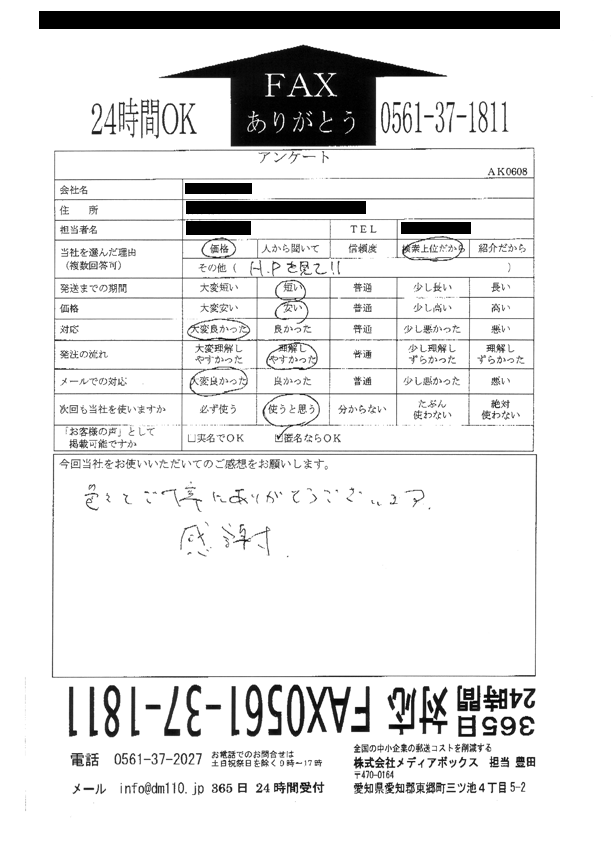 FAX
ありがとう
24時間OK
0561-37-1811
アンケート
AK0608
会社名
住 所
担当者名 TEL
当社を選んだ理由
(複数回答可)
価格 人から聞いて 信頼度 検索上位だから 紹介だから
その他( H.Pを見て!! )
発送までの期間 大変短い 短い 普通 少し長い 長い
価格 大変安い 安い 普通 少し高い 高い
対応 大変良かった 良かった 普通 少し悪かった 悪い
発注の流れ 大変理解しやすかった 理解しやすかった 普通 少し理解しずらかった 理解しずらかった
メールでの対応 大変良かった 良かった 普通 少し悪かった 悪い
次回も当社を使いますか 必ず使う 使うと思う 分からない たぶん使わない 絶対使わない
「お客様の声」として
掲載可能ですか
□実名でOK ☑匿名ならOK
今回当社をお使いいただいてのご感想をお願いします。
色々とご丁寧にありがとうございます.
感謝.
365日
24時間 対応 FAX0561-37-1811
電話 0561-37-2027 お電話でのお問合せは
土日祝祭日を除く9時~17時
メール info@dm110.jp 365日 24時間受付
全国の中小企業の郵送コストを削減する
株式会社メディアボックス 担当 豊田
〒470-0164
愛知県愛知郡東郷町三ツ池4丁目5-2